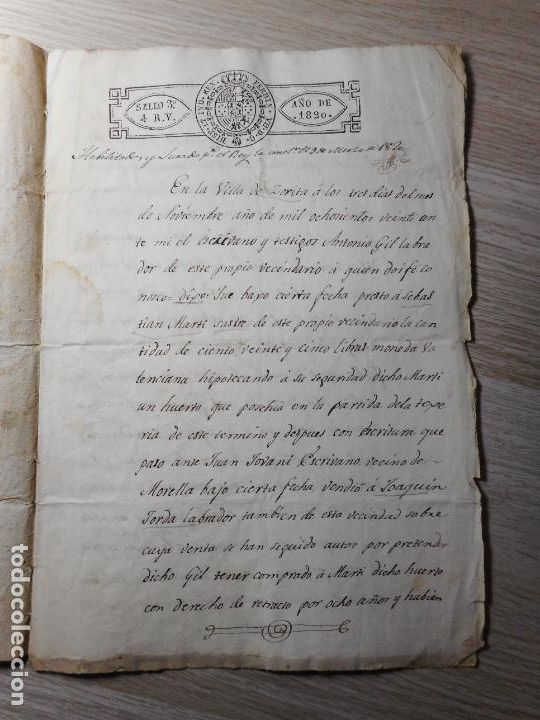 SELLO 3º
4 R.V.
HISP. ET IND. REX. FERDIN. VII. D. G.
AÑO DE
1820.
Habilitado, y Jurado pr. el Rey la const. de Marzo de 1820
En la Villa de Zorita á los tres dias del mes
de Noviembre año de mil ochosientos veinte an
te mi el escrivano y testigos Antonio Gil labra
dor de este propio vecindario á quien doi fe co
nosco: dijo: Que bajo cierta fecha presto á Sebas
tian Marti sastre de este propio vecindario la can
tidad de ciento veinte y cinco libras moneda Va
lenciana hipotecando á su seguridad dicho Marti
un huerto que posehia en la partida de la
ria de este termino y despues con Escritura que
paso ante Juan Jovani Escrivano vecino de
Morella bajo cierta fecha, vendió á Joaquin
Jorda labrador tambien de esta vecindad sobre
cuya venta se han seguido autos por pretender
dicho Gil tener comprado á Marti dicho huerto
con derecho de retracto por ocho años y habien
todocoleccion.net